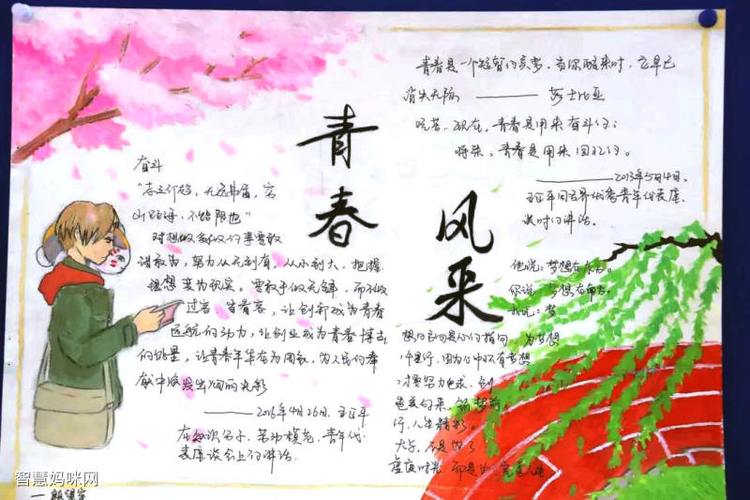 青春
风采
奋斗
"志之所趋，无远弗届，穷
山距海，不能限也"
对想做爱做的事要敢
试敢为，努力从无到有、从小到大，把握
理想变为现实。要敢于做先锋，而不做
过客、当看客，让创新成为青春
远航的动力，让创业成为青春搏击
的能量，让青春年华在为国家、为人民的奉
献中焕发出绚丽光彩
——2016年4月26日，习近平
在知识分子、劳动模范、青年代
表座谈会上的讲话
青春是一个短暂的美梦，当你醒来时，它早已
消失无踪 —— 莎士比亚
现在，青春是用来奋斗的；
将来，青春是用来回忆的。
——2013年5月4日，
习近平同各界优秀青年代表座
谈时的讲话。
他说：梦想在东方。
你说：梦想在南方。
我说：梦
想
为梦想
前行，因为心中不有梦想
才要努力追求，创
造美好未来，筑梦前
行，人生精彩。
不是为了
虚度时光，而是为
智慧妈咪网